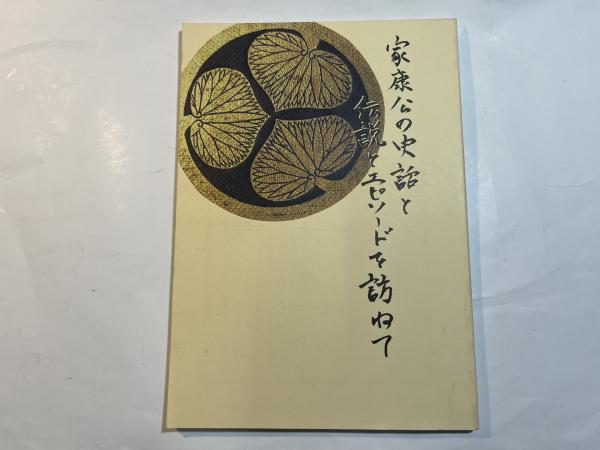 家康公の史話と
伝説とエピソードを訪ねて